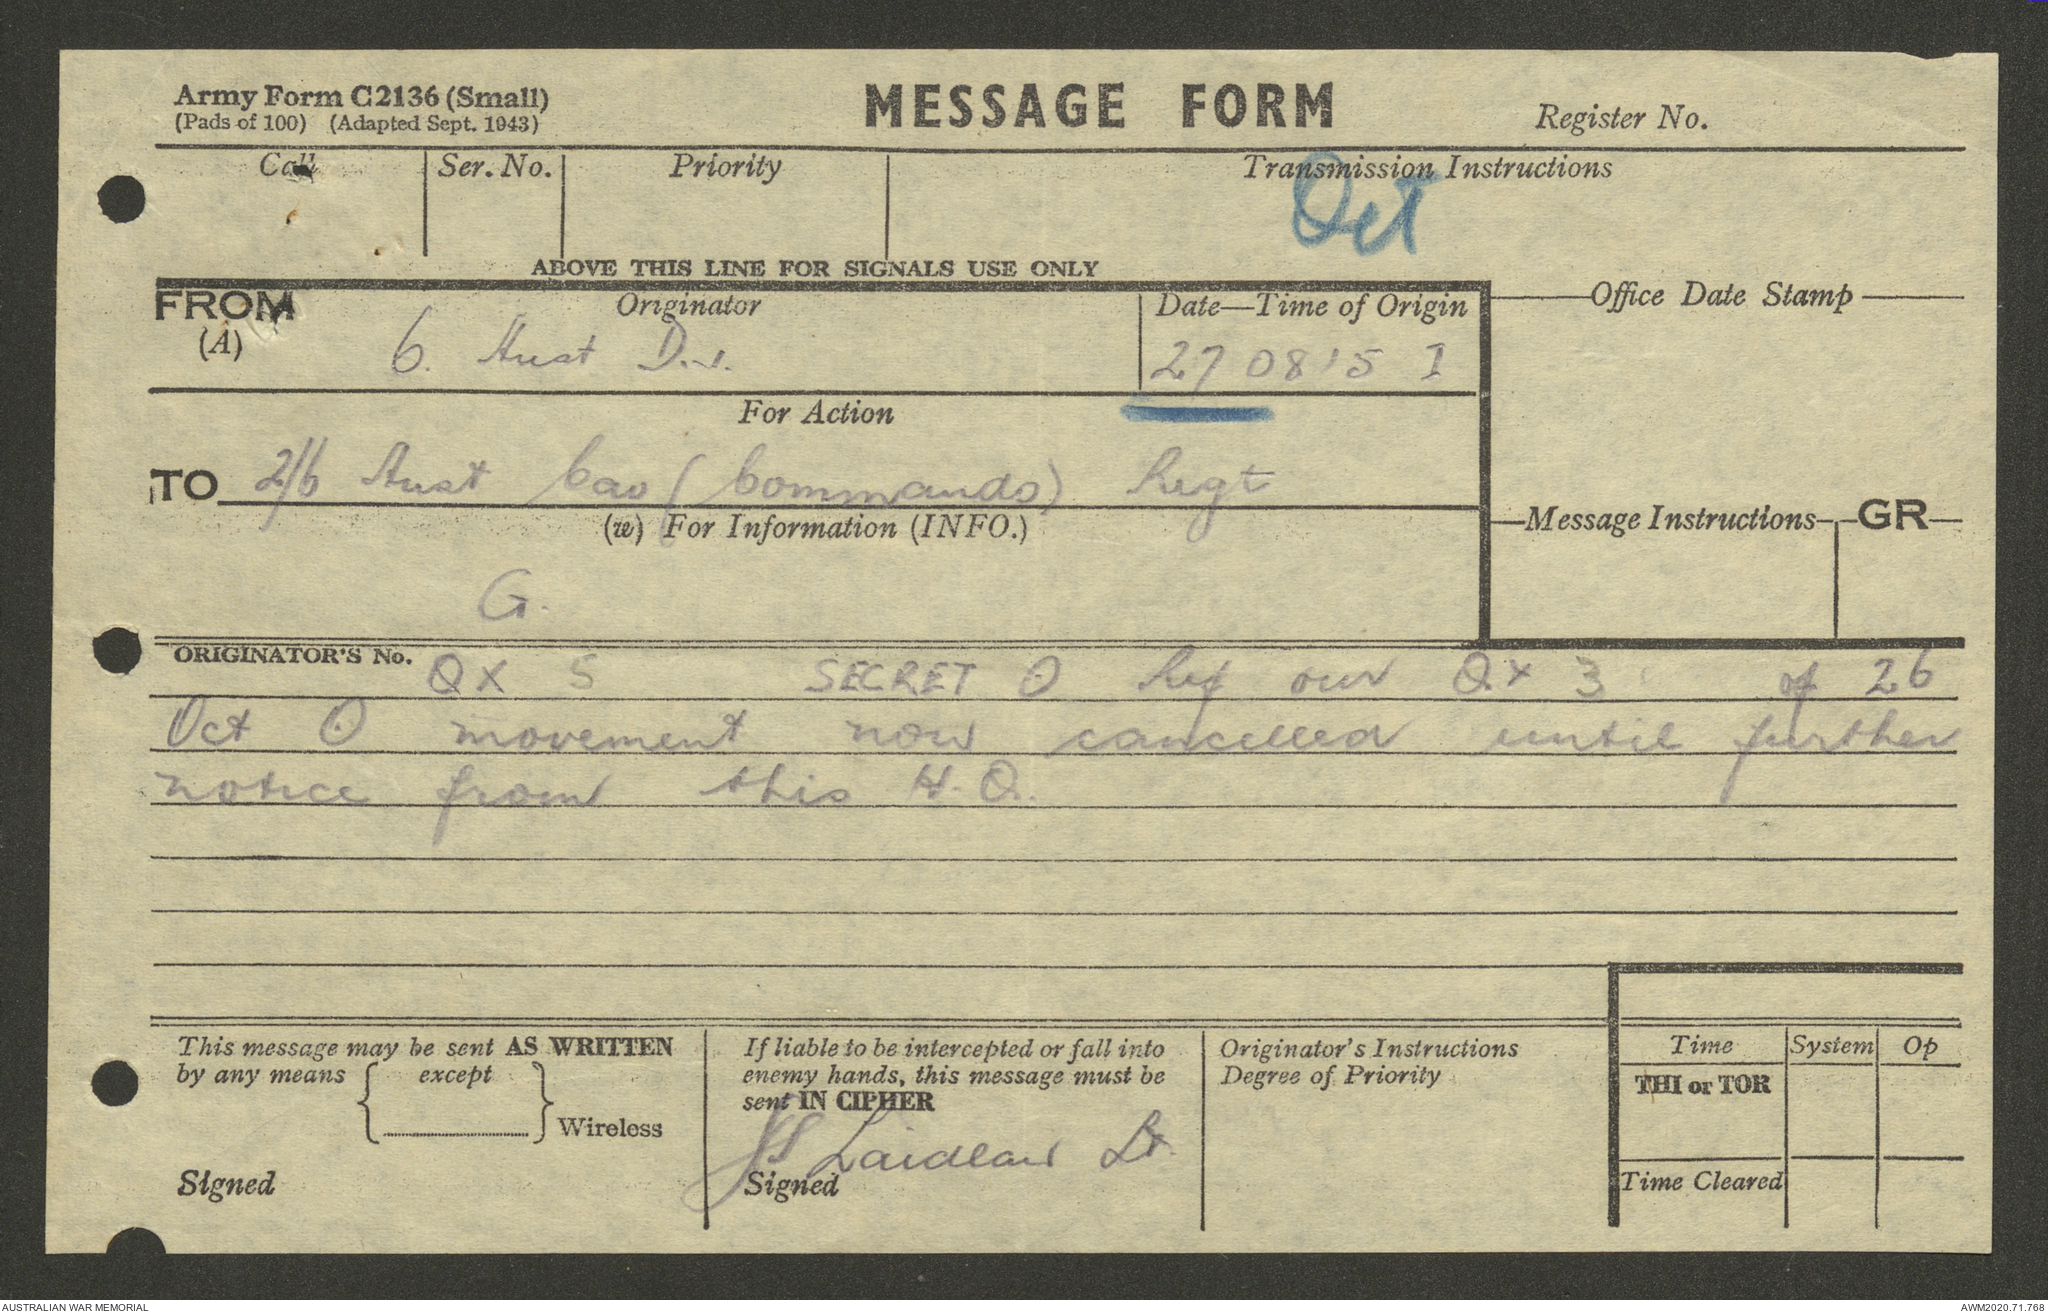 Army Form C2136 (Small)
(Pads of 100) (Adapted Sept. 1943)
MESSAGE FORM
Register No.
Call Ser. No. Priority Transmission Instructions
Oct
ABOVE THIS LINE FOR SIGNALS USE ONLY
FROM Originator Date—Time of Origin Office Date Stamp
(A) 6. Aust Div. 270815 I
For Action
TO 2/6 Aust Cav (Commando) Regt
(w) For Information (INFO.) Message Instructions GR
G.
ORIGINATOR'S No. QX 5 SECRET O Ref our QX 3 of 26
Oct O movement now cancelled until further
notice from this H.Q.
This message may be sent AS WRITTEN
by any means { except } Wireless
Signed
If liable to be intercepted or fall into
enemy hands, this message must be
sent IN CIPHER
Laidlaw Lt.
Signed
Originator's Instructions
Degree of Priority
Time System Op
THI or TOR
Time Cleared
AUSTRALIAN WAR MEMORIAL AWM2020.71.768